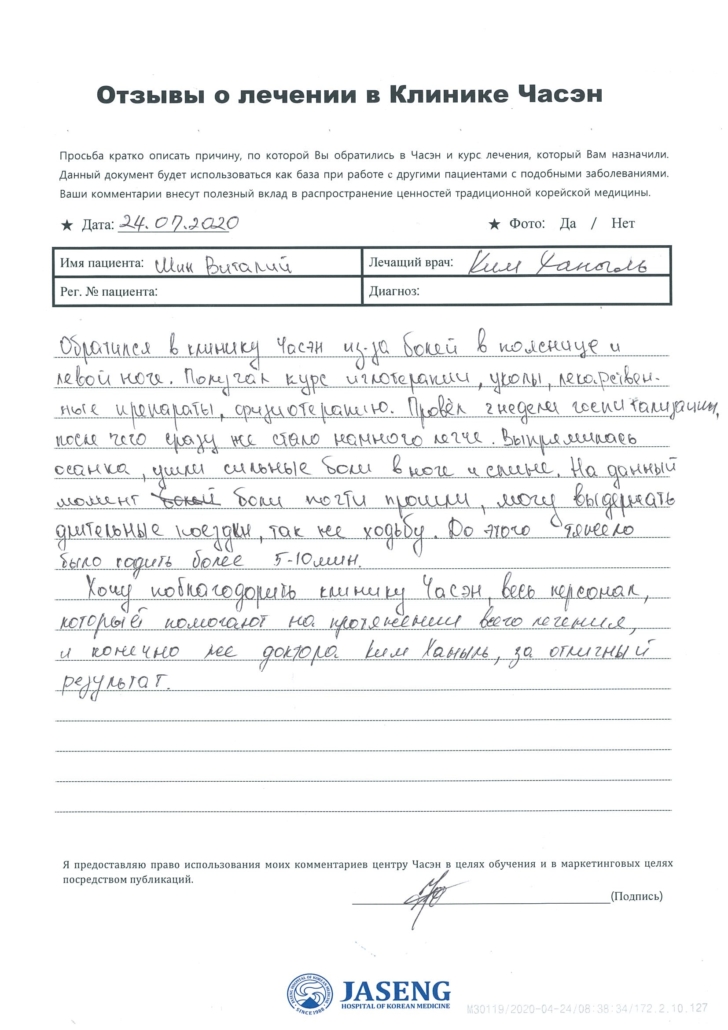 Отзывы о лечении в Клинике Часэн
Просьба кратко описать причину, по которой Вы обратились в Часэн и курс лечения, который Вам назначили.
Данный документ будет использоваться как база при работе с другими пациентами с подобными заболеваниями.
Ваши комментарии внесут полезный вклад в распространение ценностей традиционной корейской медицины.
★ Дата: 24.07.2020 ★ Фото: Да / Нет
Имя пациента: Шин Виталий Лечащий врач: Ким Ханыль
Рег. № пациента: Диагноз:
Обратился в клинику Часэн из-за болей в пояснице и
левой ноге. Получал курс иглотерапии, уколы, лекарствен-
ные препараты, физиотерапию. Провёл 2 недели госпитализации,
после чего сразу же стало намного легче. Выпрямилась
осанка, ушли сильные боли в ноге и спине. На данный
момент боли почти прошли, могу выдержать
длительные поездки, так же ходьбу. До этого тяжело
было ходить более 5-10 мин.
Хочу поблагодорить клинику Часэн, весь персонал,
который помогают на протяжении всего лечения,
и конечно же доктора Ким Ханыль, за отличный
результат.
Я предоставляю право использования моих комментариев центру Часэн в целях обучения и в маркетинговых целях
посредством публикаций.
(Подпись)
JASENG
HOSPITAL OF KOREAN MEDICINE
SINCE 1988
M30119/2020-04-24/08:38:34/172.2.10.127